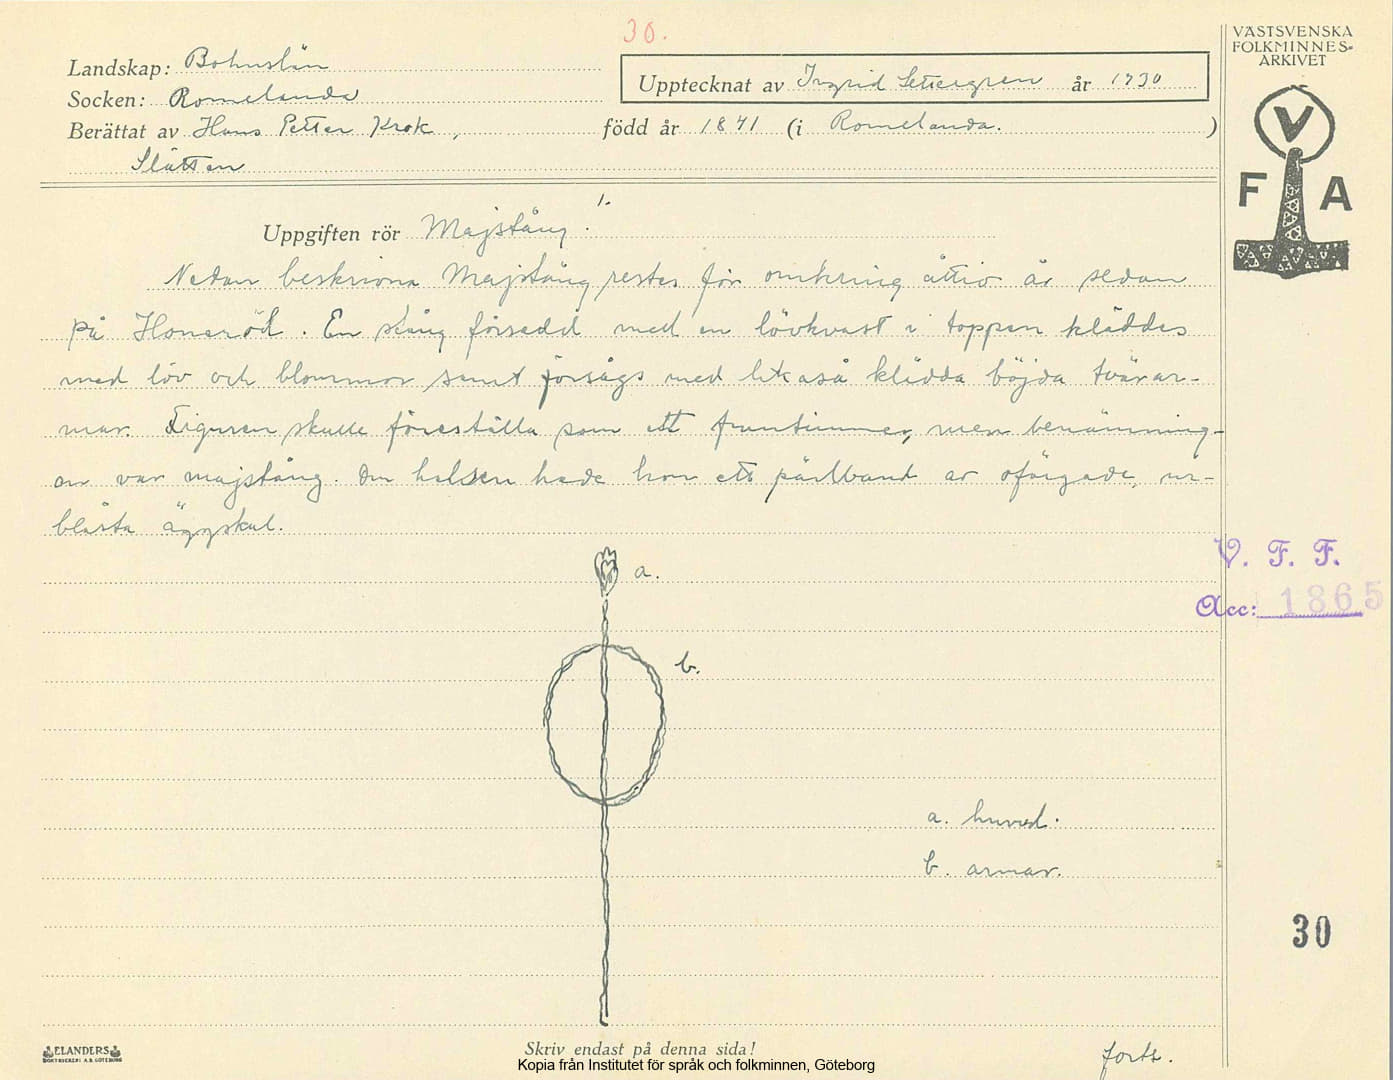 30.
VÄSTSVENSKA
FOLKMINNES-
ARKIVET
Landskap: Bohuslän
Upptecknat av Ingrid Settergren år 1930
Socken: Romelanda
Berättat av Hans Petter Krok, född år 1841 (i Romelanda.)
Slätten
V
F A
1.
Uppgiften rör Majstång.
Nedan beskrivna Majstång restes för omkring åttio år sedan
på Honeröd. En stång försedd med en lövkvast i toppen kläddes
med löv och blommor samt försågs med likaså klädda böjda tvärar-
mar. Figuren skulle föreställa som ett fruntimmer, men benämning-
en var majstång. Om halsen hade hon ett pärlband av ofärgade, ur-
blåsta äggskal.
V. F. F.
a.
Acc: 1865
b.
a. huvud.
b. armar.
30
ELANDERS
BOKTRYCKERI A.B. GÖTEBORG
Skriv endast på denna sida!
forts.
Kopia från Institutet för språk och folkminnen, Göteborg